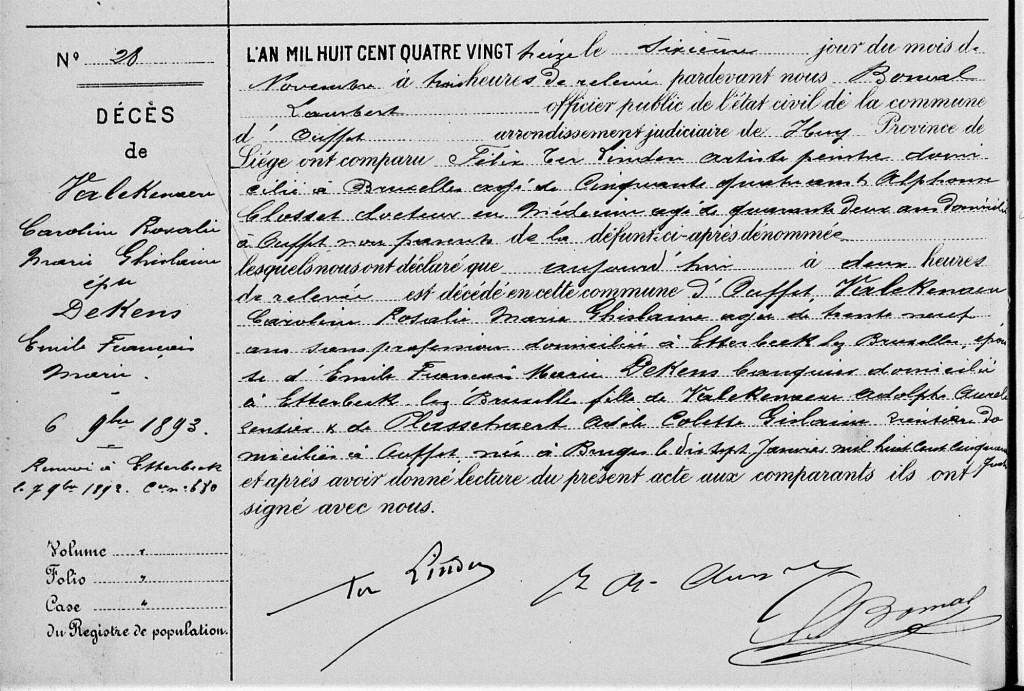 Nº 28
DÉCÈS
de
Valckenaere
Caroline Rosalie
Marie Ghislaine
épse
DeKens
Emile François
Marie.
6 9bre 1893.
Renvoi à Etterbeek
le 7 9bre 1893.
Volume "
Folio "
Case "
du Registre de population.
L'AN MIL HUIT CENT QUATRE VINGT treize le sixième jour du mois de
Novembre à trois heures de relevée pardevant nous Bonval
Lambert officier public de l'état civil de la commune
d' Ouffet arrondissement judiciaire de Huy Province de
Liége ont comparu Félix Ter Linden artiste peintre domi
cilié à Bruxelles agé de Cinquante quatre ans & Alphonse
Closset docteur en Médecine agé de quarante deux ans domicilié
à Ouffet non parents de la défunte ci-après dénommée
lesquels nous ont déclaré que aujourd'hui à deux heures
de relevée est décédé en cette commune d' Ouffet Valckenaere
Caroline Rosalie Marie Ghislaine agée de trente neuf
ans sans profession domiciliée à Etterbeek lez Bruxelles, épou
se d'Emile François Marie DeKens banquier domicilié
à Etterbeek lez Bruxelles fille de Valckenaere Adolphe
rentier & de Adèle Colette Gislaine rentière do
miciliée à Ouffet née à Bruges le dix sept Janvier mil huit cent cinquante
quatre
et après avoir donné lecture du présent acte aux comparants ils ont
signé avec nous.
Ter Linden
Bonval